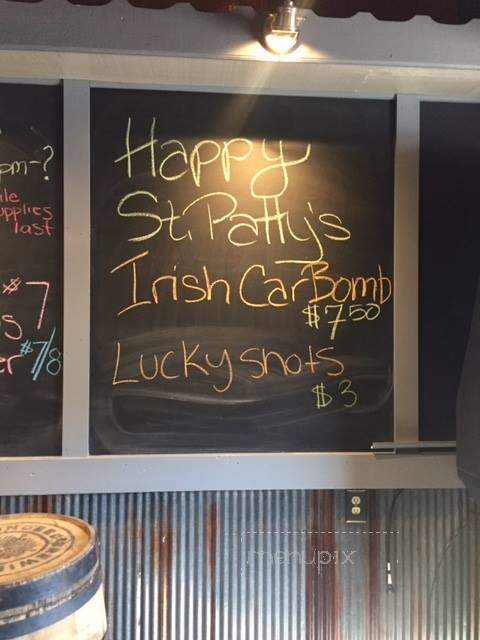 pm-?
ile
upplies
last
$7
s
er $7/8
Happy
St. Patty's
Irish Car Bomb
$7.50
Lucky shots
$3
menupix